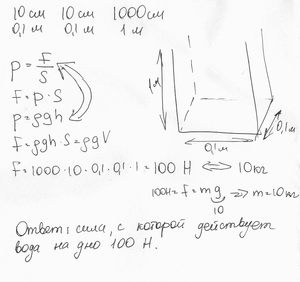 10 см 10 см 1000 см
0,1 м 0,1 м 1 м
p = F/S
F = p · S
p = ρgh
F = ρgh · S = ρgV
F = 1000 · 10 · 0,1 · 0,1 · 1 = 100 Н ⇔ 10 кг
1м
0,1м
0,1м
100Н = F = mg ⇒ m = 10 кг
10
Ответ: сила, с которой действует
вода на дно 100 Н.